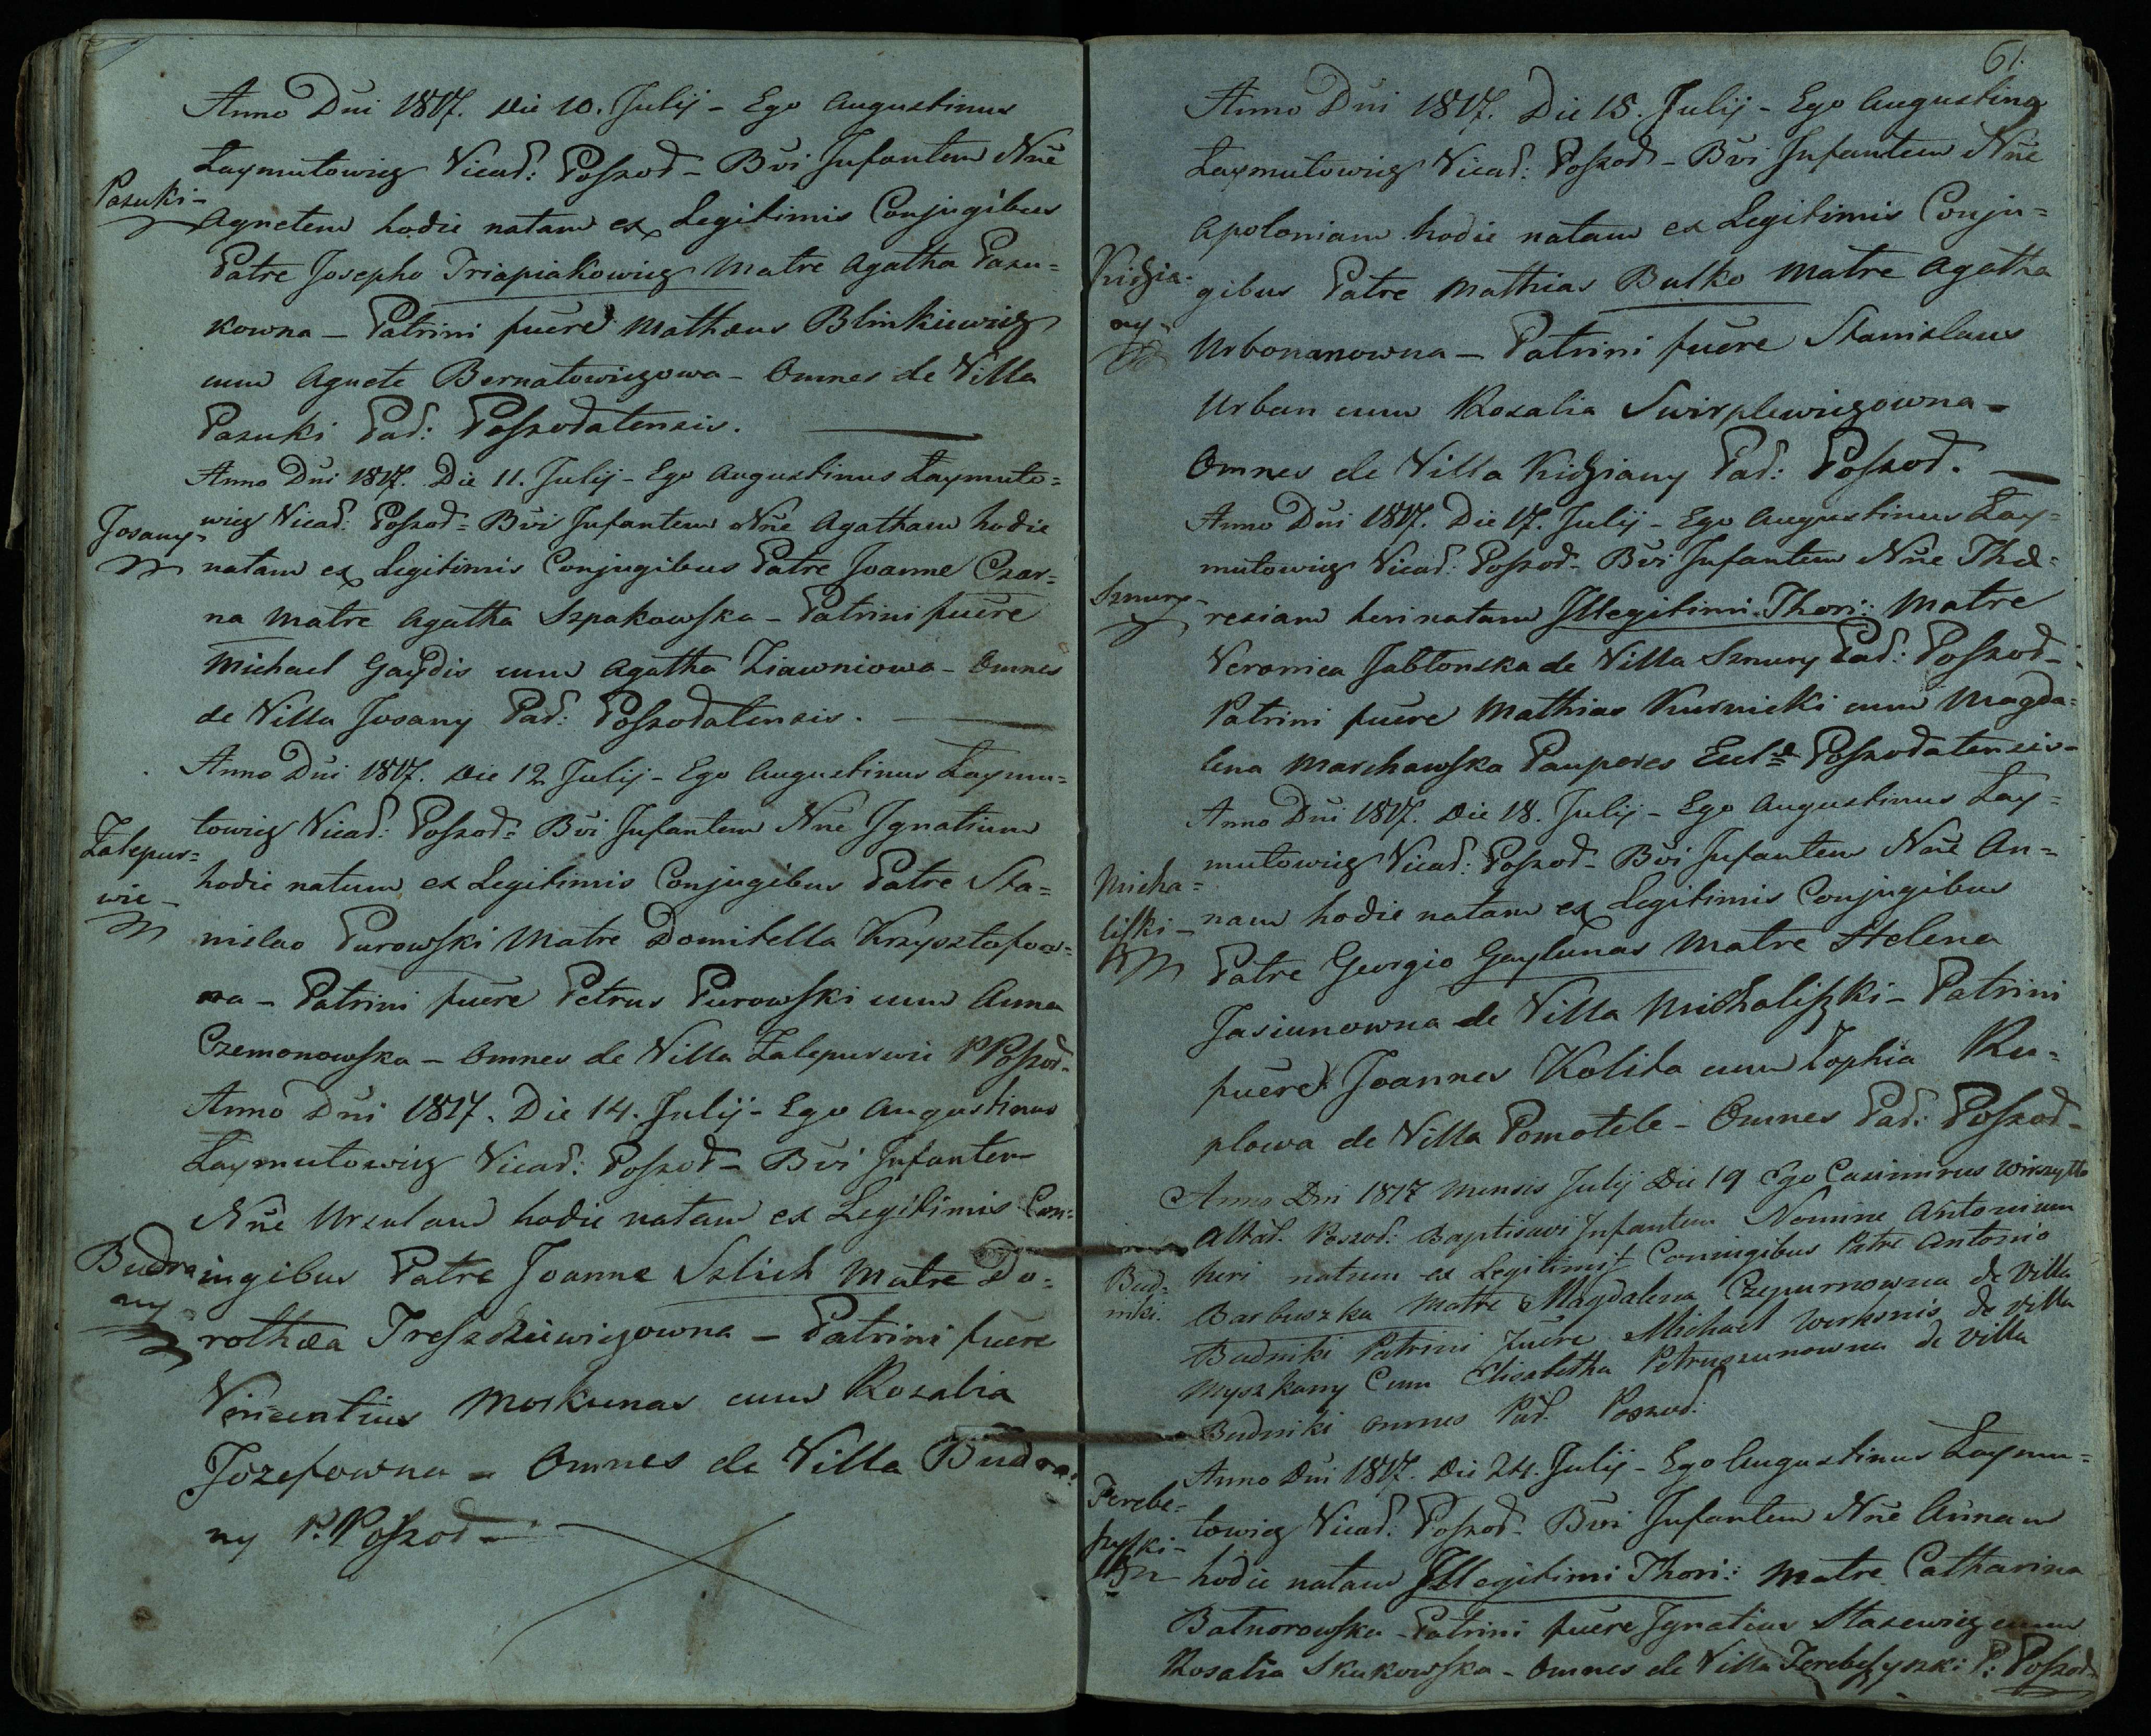 Anno Dni 1817. Die 10. Julij - Ego Augustinus
Laymutowicz Vicad: Poszod - Bvi Infantem Nne
Pazuki -
Agnetem hodie natam ex Legitimis Conjugibus
Patre Josepho Triapiakowicz Matre Agatha Pazu=
kowna - Patrini fuere Mathæus Blinkiewicz
cum Agnete Bernatowiczowa - Omnes de Villa
Pazuki Pad: Poszodatensis.
Anno Dni 1817. Die 11. Julij - Ego Augustinus Laymuto=
Josany -
wicz Vicad: Poszod= Bvi Infantem Nne Agatham hodie
natam ex Legitimis Conjugibus Patre Joanne Czar=
na Matre Agatha Szpakowska - Patrini fuere
Michael Gaydis cum Agatha Ziawniowa - Omnes
de Villa Josany Pad: Poszodatensis.
Anno Dni 1817. Die 12 Julij - Ego Augustinus Laymu=
towicz Vicad: Poszod= Bvi Infantem Nne Ignatium
Zalepur=
wie -
hodie natum ex Legitimis Conjugibus Patre Sta=
nislao Purowski Matre Domitella Krzysztofow=
na - Patrini fuere Petrus Purowski cum Anna
Czemonowska - Omnes de Villa Zalepurwie P Poszod-
Anno Dni 1817. Die 14. Julij - Ego Augustinus
Laymutowicz Vicad: Poszod - Bvi Infantem
Nne Urzulam hodie natam ex Legitimis Con=
Budra
ny
iugibus Patre Joanne Szlich Matre Do=
rothæa Treszkiewiczowna - Patrini fuere
Vincentius Moskunas cum Rozalia
Jozefowna - Omnes de Villa Budra=
ny P. Poszod -
61.
Anno Dni 1817. Die 15. Julij - Ego Augustinq
Laymutowicz Vicad: Poszod - Bvi Infantem Nne
Apoloniam hodie natam ex Legitimis Conju=
Kidzia=
ny -
gibus Patre Mathias Butko Matre Agatha
Urbonanowna - Patrini fuere Stanislaus
Urban cum Rozalia Swirplewiczowna -
Omnes de Villa Kidziany Pad: Poszod.
Anno Dni 1817. Die 17. Julij - Ego Augustinus Lay=
mutowicz Vicad: Poszod - Bvi Infantem Nne The=
Sznury -
resiam heri natam Illegitimi Thori: Matre
Veronica Jablonska de Villa Sznury Pad: Poszod -
Patrini fuere Mathias Kurnicki cum Magda=
lena Marchawska Pauperes Ecclæ Poszodatensis -
Anno Dni 1817. Die 18. Julij - Ego Augustinus Lay=
mutowicz Vicad: Poszod - Bvi Infantem Nne An=
Micha=
liszki -
nam hodie natam ex Legitimis Conjugibus
Patre Georgio Gaylunas Matre Helena
Jasiunowna de Villa Michaliszki - Patrini
fuere Joannes Kolita cum Zophia Ru=
plowa de Villa Pomotele - Omnes Pad: Poszod -
Anno Dni 1817 Mensis Julij Die 19 Ego Casimirus Wirszytto
Altad. Poszod: Baptisavi Infantem Nomine Antonium
Bud=
niki.
heri natum ex Legitimis Coniugibus Patre Antonio
Barbuszka Matre Magdalena Czepurnowna de Villa
Budniki Patrini fuere Michael Werksnis de Villa
Myszkany Cum Elisabetha Petruszunowna de Villa
Budniki omnes Pad. Poszod.
Anno Dni 1817. Die 24. Julij - Ego Augustinus Laymu=
Terebe=
szyszki -
towicz Vicad: Poszod - Bvi Infantem Nne Annam
hodie natam Illegitimi Thori: Matre Catharina
Batnorowska - Patrini fuere Ignatius Stazewicz cum
Rosalia Skukowska - Omnes de Villa Terebeszyszki P: Poszod -